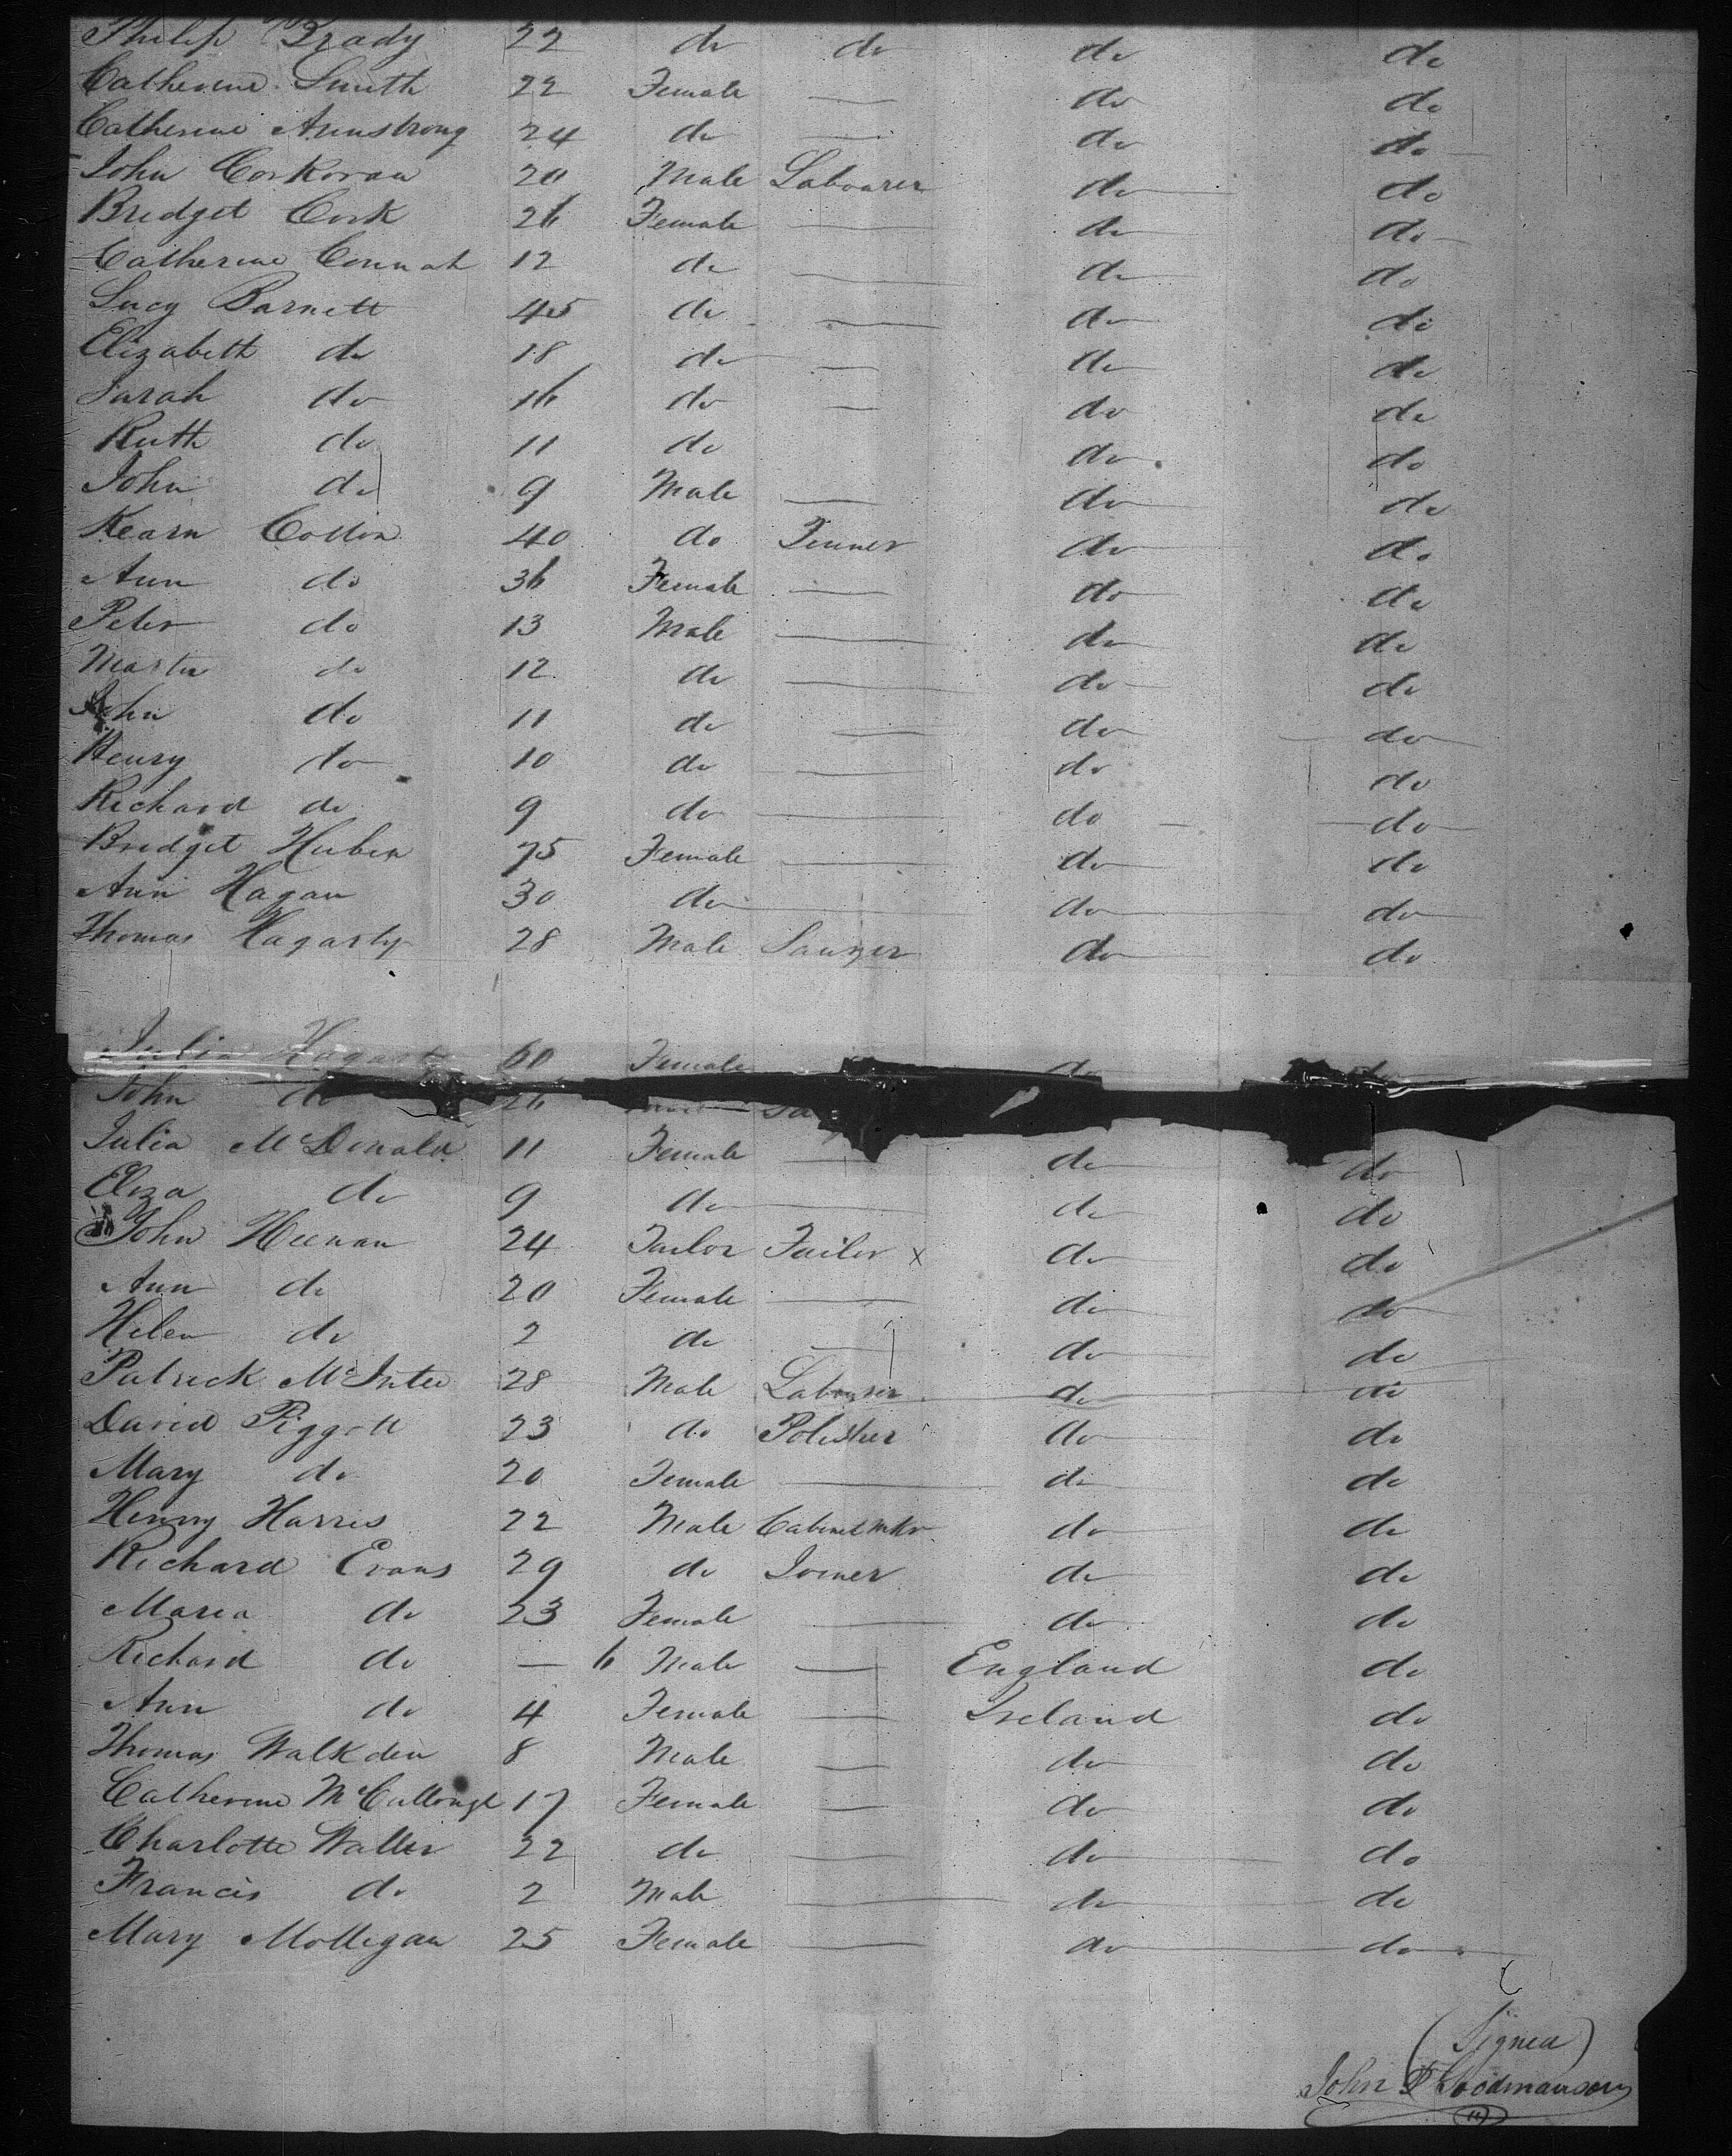 Philip Brady 22 do do do do
Catherine Smith 22 Female — do do
Catherine Armstrong 24 do — do do
John Corkoran 20 Male Labourer do do
Bridget Cork 26 Female — do do
Catherine Connah 12 do — do do
Lucy Barnett 45 do — do do
Elizabeth do 18 do — do do
Sarah do 16 do — do do
Ruth do 11 do do do
John do 9 Male — do do
Kearn Collon 40 do do do
Ann do 36 Female — do do
Peter do 13 Male — do do
Martin do 12 do — do do
John do 11 do — do do
Henry do 10 do — do do
Richard do 9 do — do do
Bridget Huben 75 Female — do do
Ann Hagan 30 do — do do
Thomas Hagarty 28 Male Sawyer do do
Julia Hagarty 60 Female do do
John do 26
Julia McDonald 11 Female — do do
Eliza do 9 do — do do
John Heenan 24 Tailor Tailor x do do
Ann do 20 Female — do do
Helen do 2 do — do do
Patrick McIntee 28 Male Labourer do do
David Piggott 23 do Polisher do do
Mary do 20 Female — do do
Henry Harris 22 Male Cabinet Mkr do do
Richard Evans 29 do Joiner do do
Maria do 23 Female — do do
Richard do — 6 Male — England do
Ann do 4 Female — Ireland do
Thomas Walkden 8 Male — do do
Catherine McCullough 17 Female — do do
Charlotte Waller 22 do — do do
Francis do 2 Male — do do
Mary Molligan 25 Female — do do
(Signed)
John P Goodmanson